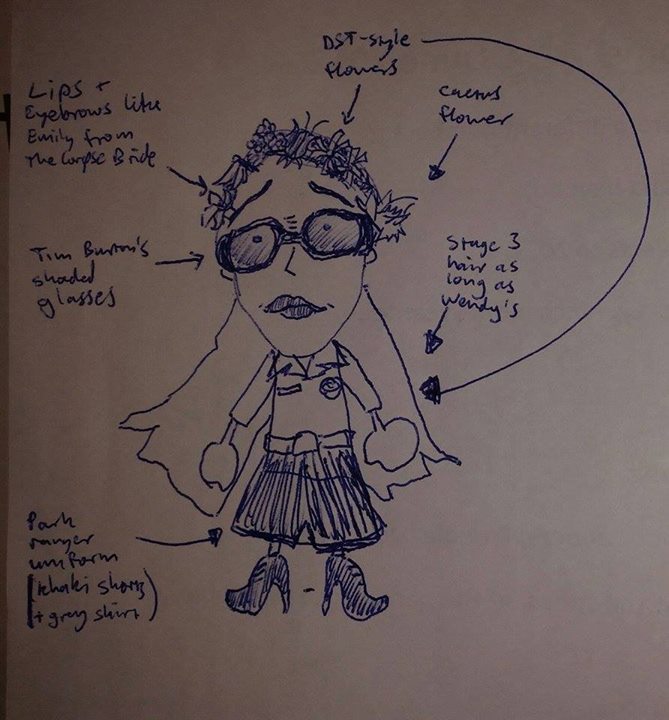 DST-style
flowers
Lips +
Eyebrows like
Emily from
The Corpse Bride
Cactus
flower
Tim Burton's
shaded
glasses
Stage 3
hair as
long as
Wendy's
Park
ranger
uniform
(khaki shorts
+ grey shirt)